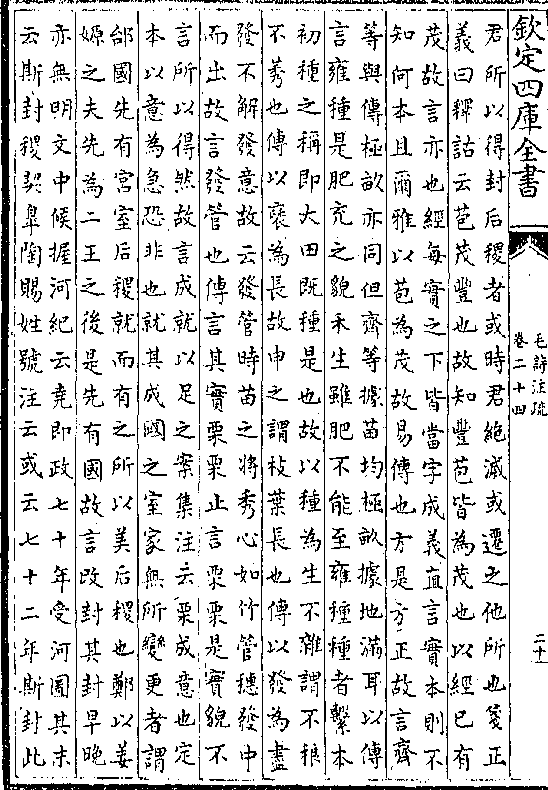 欽定四庫全書
毛詩注疏
卷二十四
二十
君所以得封后稷者或時君絶滅或遷之他所也箋正
義曰釋詁云苞茂豐也故知豐苞皆為茂也以經已有
茂故言亦也經每實之下皆當字成義直言實本則不
知何本且爾雅以苞為茂故易傳也方是方正故言齊
等與傳極畝亦同但齊等據苗均極畝據地滿耳以傳
言雍種是肥充之貌禾生雖肥不能至雍種種者繫本
初種之稱即大田既種是也故以種為生不雜謂不稂
不莠也傳以褎為長故申之謂枝葉長也傳以發為盡
發不解發意故云發管時苗之將秀心如竹管穗發中
而出故言發管也傳言其實栗栗止言栗栗是實貌不
言所以得然故言成就以足之案集注云栗成意也定
本以意為急恐非也就其成國之室家無所變更者謂
邰國先有宮室后稷就而有之所以美后稷也鄭以姜
嫄之夫先為二王之後是先有國故言改封其封早晚
亦無明文中候握河紀云堯即政七十年受河圖其末
云斯封稷契臯陶賜姓號注云或云七十二年斯封此